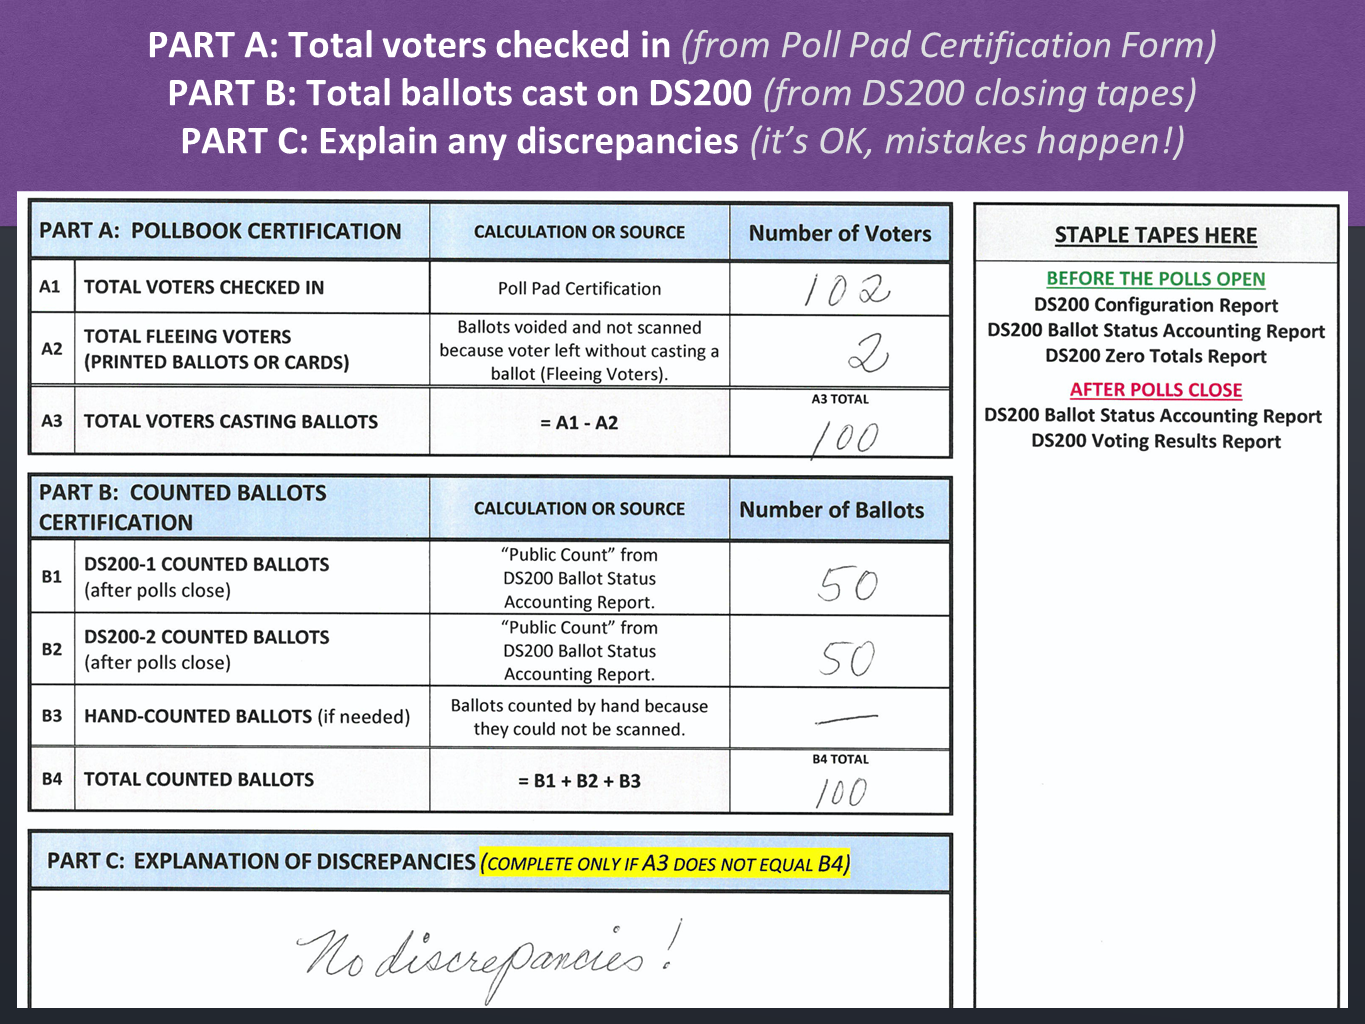 PART A: Total voters checked in (from Poll Pad Certification Form)
PART B: Total ballots cast on DS200 (from DS200 closing tapes)
PART C: Explain any discrepancies (it’s OK, mistakes happen!)
PART A: POLLBOOK CERTIFICATION
CALCULATION OR SOURCE
Number of Voters
A1
TOTAL VOTERS CHECKED IN
Poll Pad Certification
102
A2
TOTAL FLEEING VOTERS
(PRINTED BALLOTS OR CARDS)
Ballots voided and not scanned
because voter left without casting a
ballot (Fleeing Voters).
2
A3
TOTAL VOTERS CASTING BALLOTS
= A1 - A2
A3 TOTAL
100
PART B: COUNTED BALLOTS
CERTIFICATION
CALCULATION OR SOURCE
Number of Ballots
B1
DS200-1 COUNTED BALLOTS
(after polls close)
“Public Count” from
DS200 Ballot Status
Accounting Report.
50
B2
DS200-2 COUNTED BALLOTS
(after polls close)
“Public Count” from
DS200 Ballot Status
Accounting Report.
50
B3
HAND-COUNTED BALLOTS (if needed)
Ballots counted by hand because
they could not be scanned.
—
B4
TOTAL COUNTED BALLOTS
= B1 + B2 + B3
B4 TOTAL
100
PART C: EXPLANATION OF DISCREPANCIES (COMPLETE ONLY IF A3 DOES NOT EQUAL B4)
No discrepancies!
STAPLE TAPES HERE
BEFORE THE POLLS OPEN
DS200 Configuration Report
DS200 Ballot Status Accounting Report
DS200 Zero Totals Report
AFTER POLLS CLOSE
DS200 Ballot Status Accounting Report
DS200 Voting Results Report